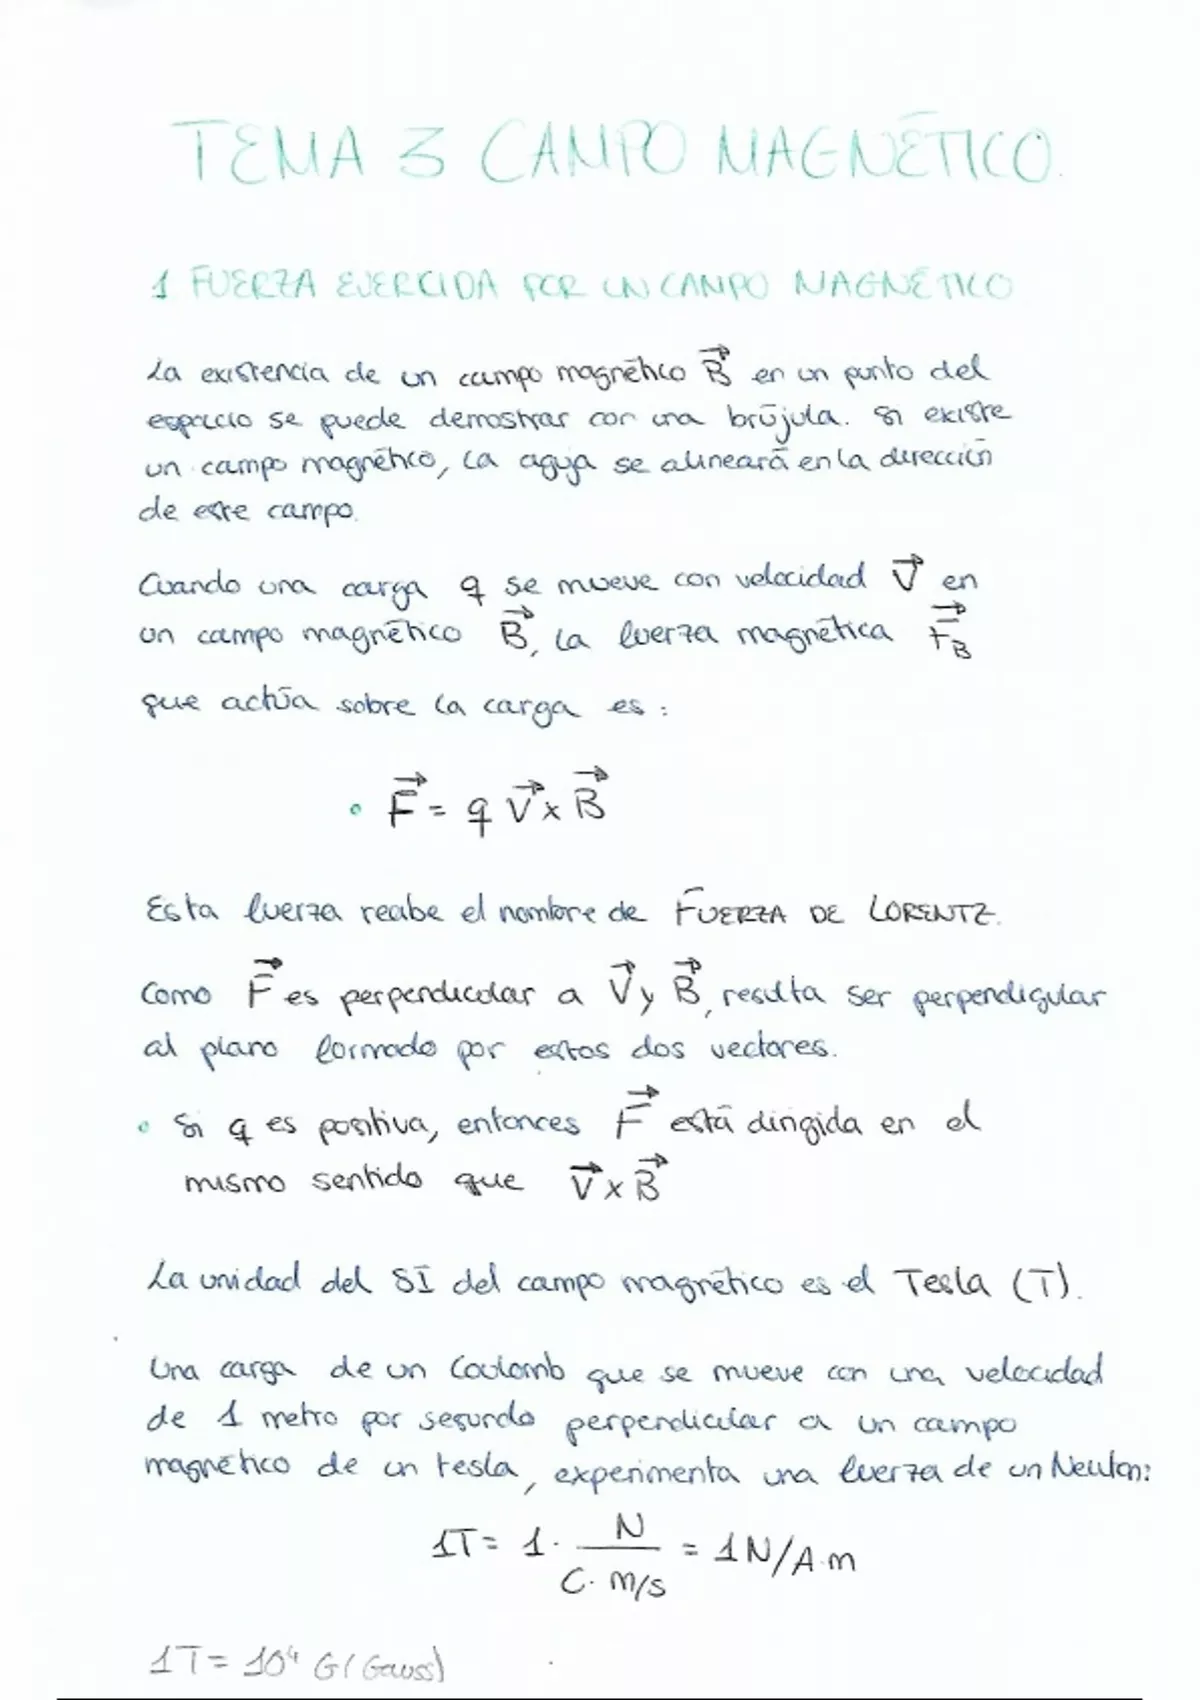 TEMA 3 CAMPO MAGNÉTICO.
1 FUERZA EJERCIDA POR UN CAMPO MAGNÉTICO
La existencia de un campo magnético B⃗ en un punto del
espacio se puede demostrar con una brújula. Si existe
un campo magnético, la aguja se alineará en la dirección
de este campo.
Cuando una carga q se mueve con velocidad V⃗ en
un campo magnético B⃗, la fuerza magnética F⃗_B
que actúa sobre la carga es:
• F⃗ = q V⃗ x B⃗
Esta fuerza recibe el nombre de FUERZA DE LORENTZ.
Como F⃗ es perpendicular a V⃗ y B⃗, resulta ser perpendigular
al plano formado por estos dos vectores.
• Si q es positiva, entonces F⃗ está dirigida en el
mismo sentido que V⃗ x B⃗
La unidad del SI del campo magnético es el Tesla (T).
Una carga de un Coulomb que se mueve con una velocidad
de 1 metro por segundo perpendicular a un campo
magnético de un tesla, experimenta una fuerza de un Newton:
1T = 1 · N / (C · m/s) = 1N/A·m
1T = 10⁴ G (Gauss)